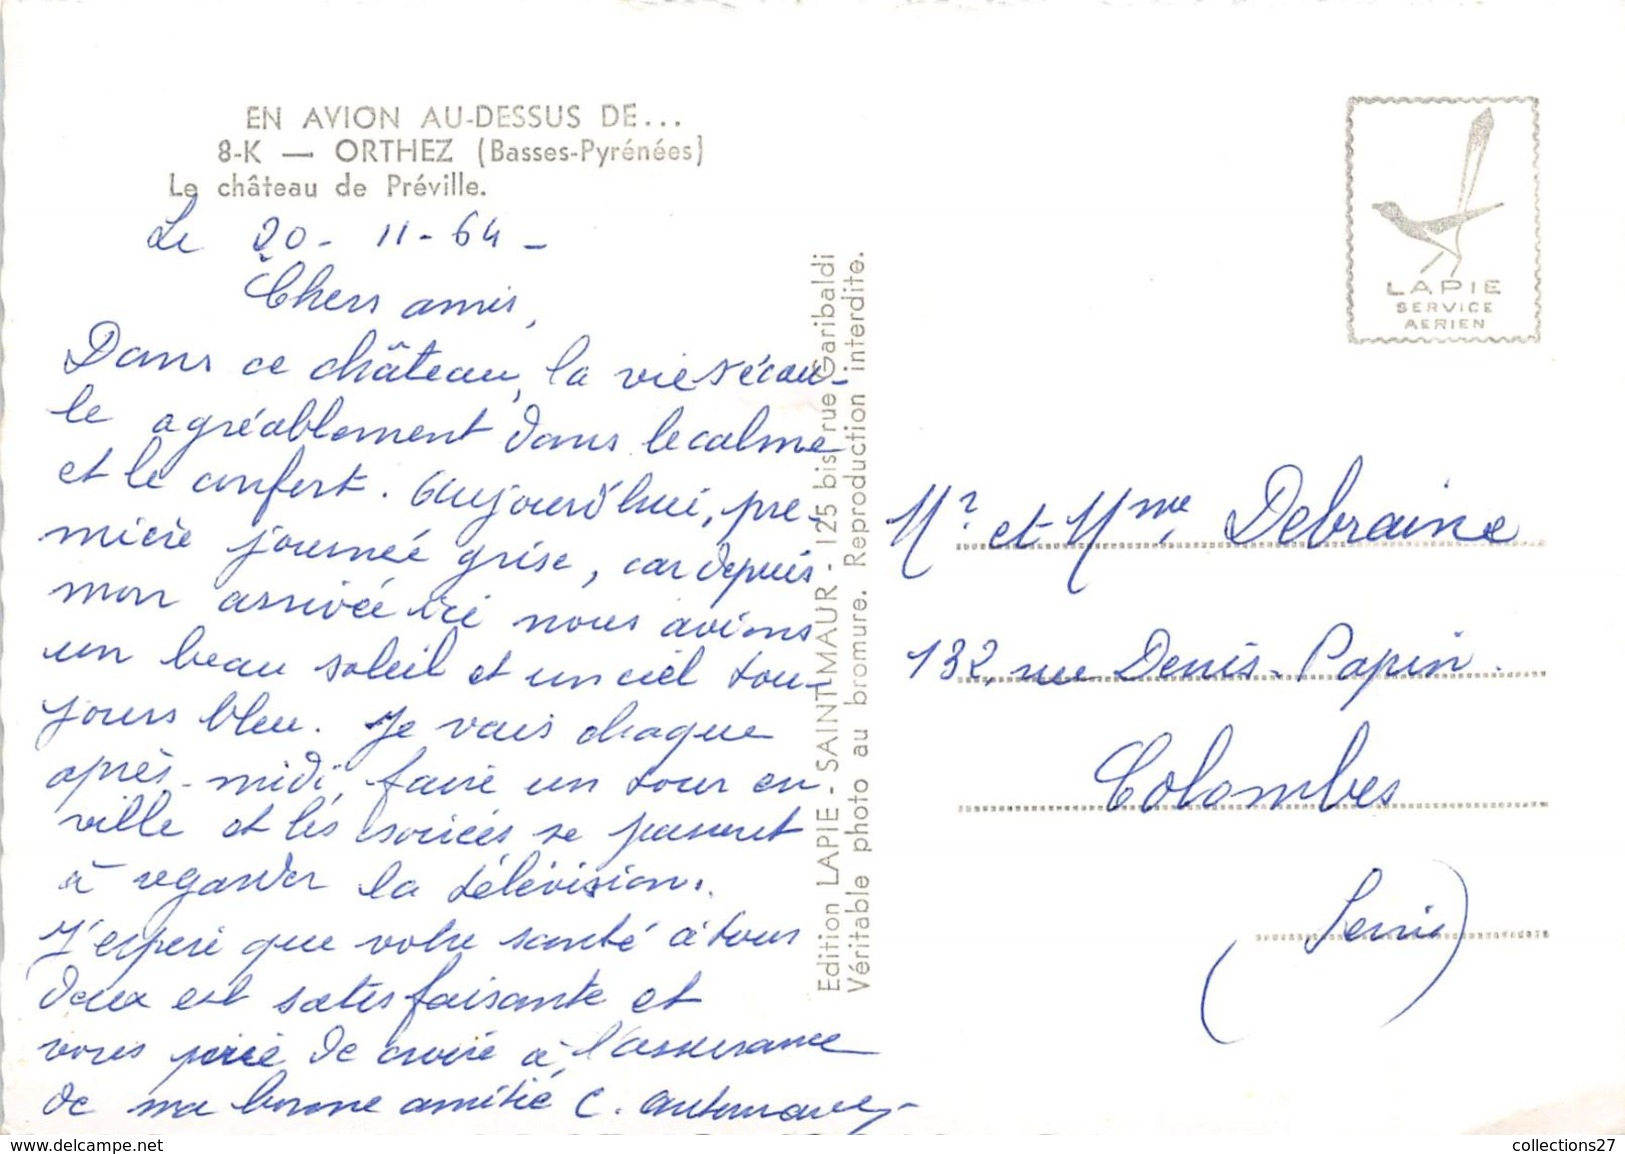 EN AVION AU-DESSUS DE...
8-K — ORTHEZ (Basses-Pyrénées)
Le château de Préville.
Le 20-11-64-
Chers amis,
Dans ce château, la vie s'écou-
le agréablement dans le calme
et le confort. Aujourd'hui, pre-
mière journée grise, car depuis
mon arrivée ici nous avions
un beau soleil et un ciel tou-
jours bleu. Je vais chaque
après-midi, faire un tour en
ville et les soirées se passent
à regarder la télévision.
J'espère que votre santé à tous
deux est satisfaisante et
vous prie de croire à l'assurance
de ma bonne amitié C.
Edition LAPIE - SAINT-MAUR - 125 bis rue Garibaldi
Véritable photo au bromure. Reproduction interdite.
LAPIE
SERVICE
AERIEN
Mr et Mme Debraine
132, rue Denis-Papin
Colombes
(Seine)
collections27